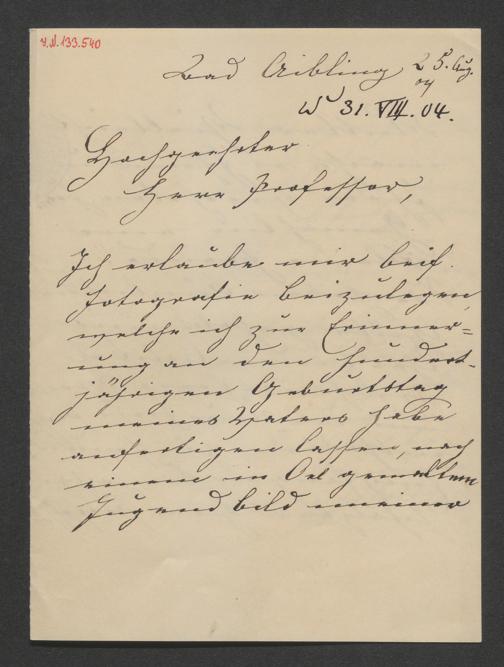 H.N. 133.540
Bad Aibling 25. Aug.
04
31. VIII. 04.
Hochgeehrter
Herr Professor,
Ich erlaube mir beif.
Fotografie beizulegen,
welche ich zur Erinner=
ung an den hundert-
jährigen Geburtstag
meines Vaters habe
anfertigen lassen, nach
einem in Oel gemaltem
Jugendbild meines